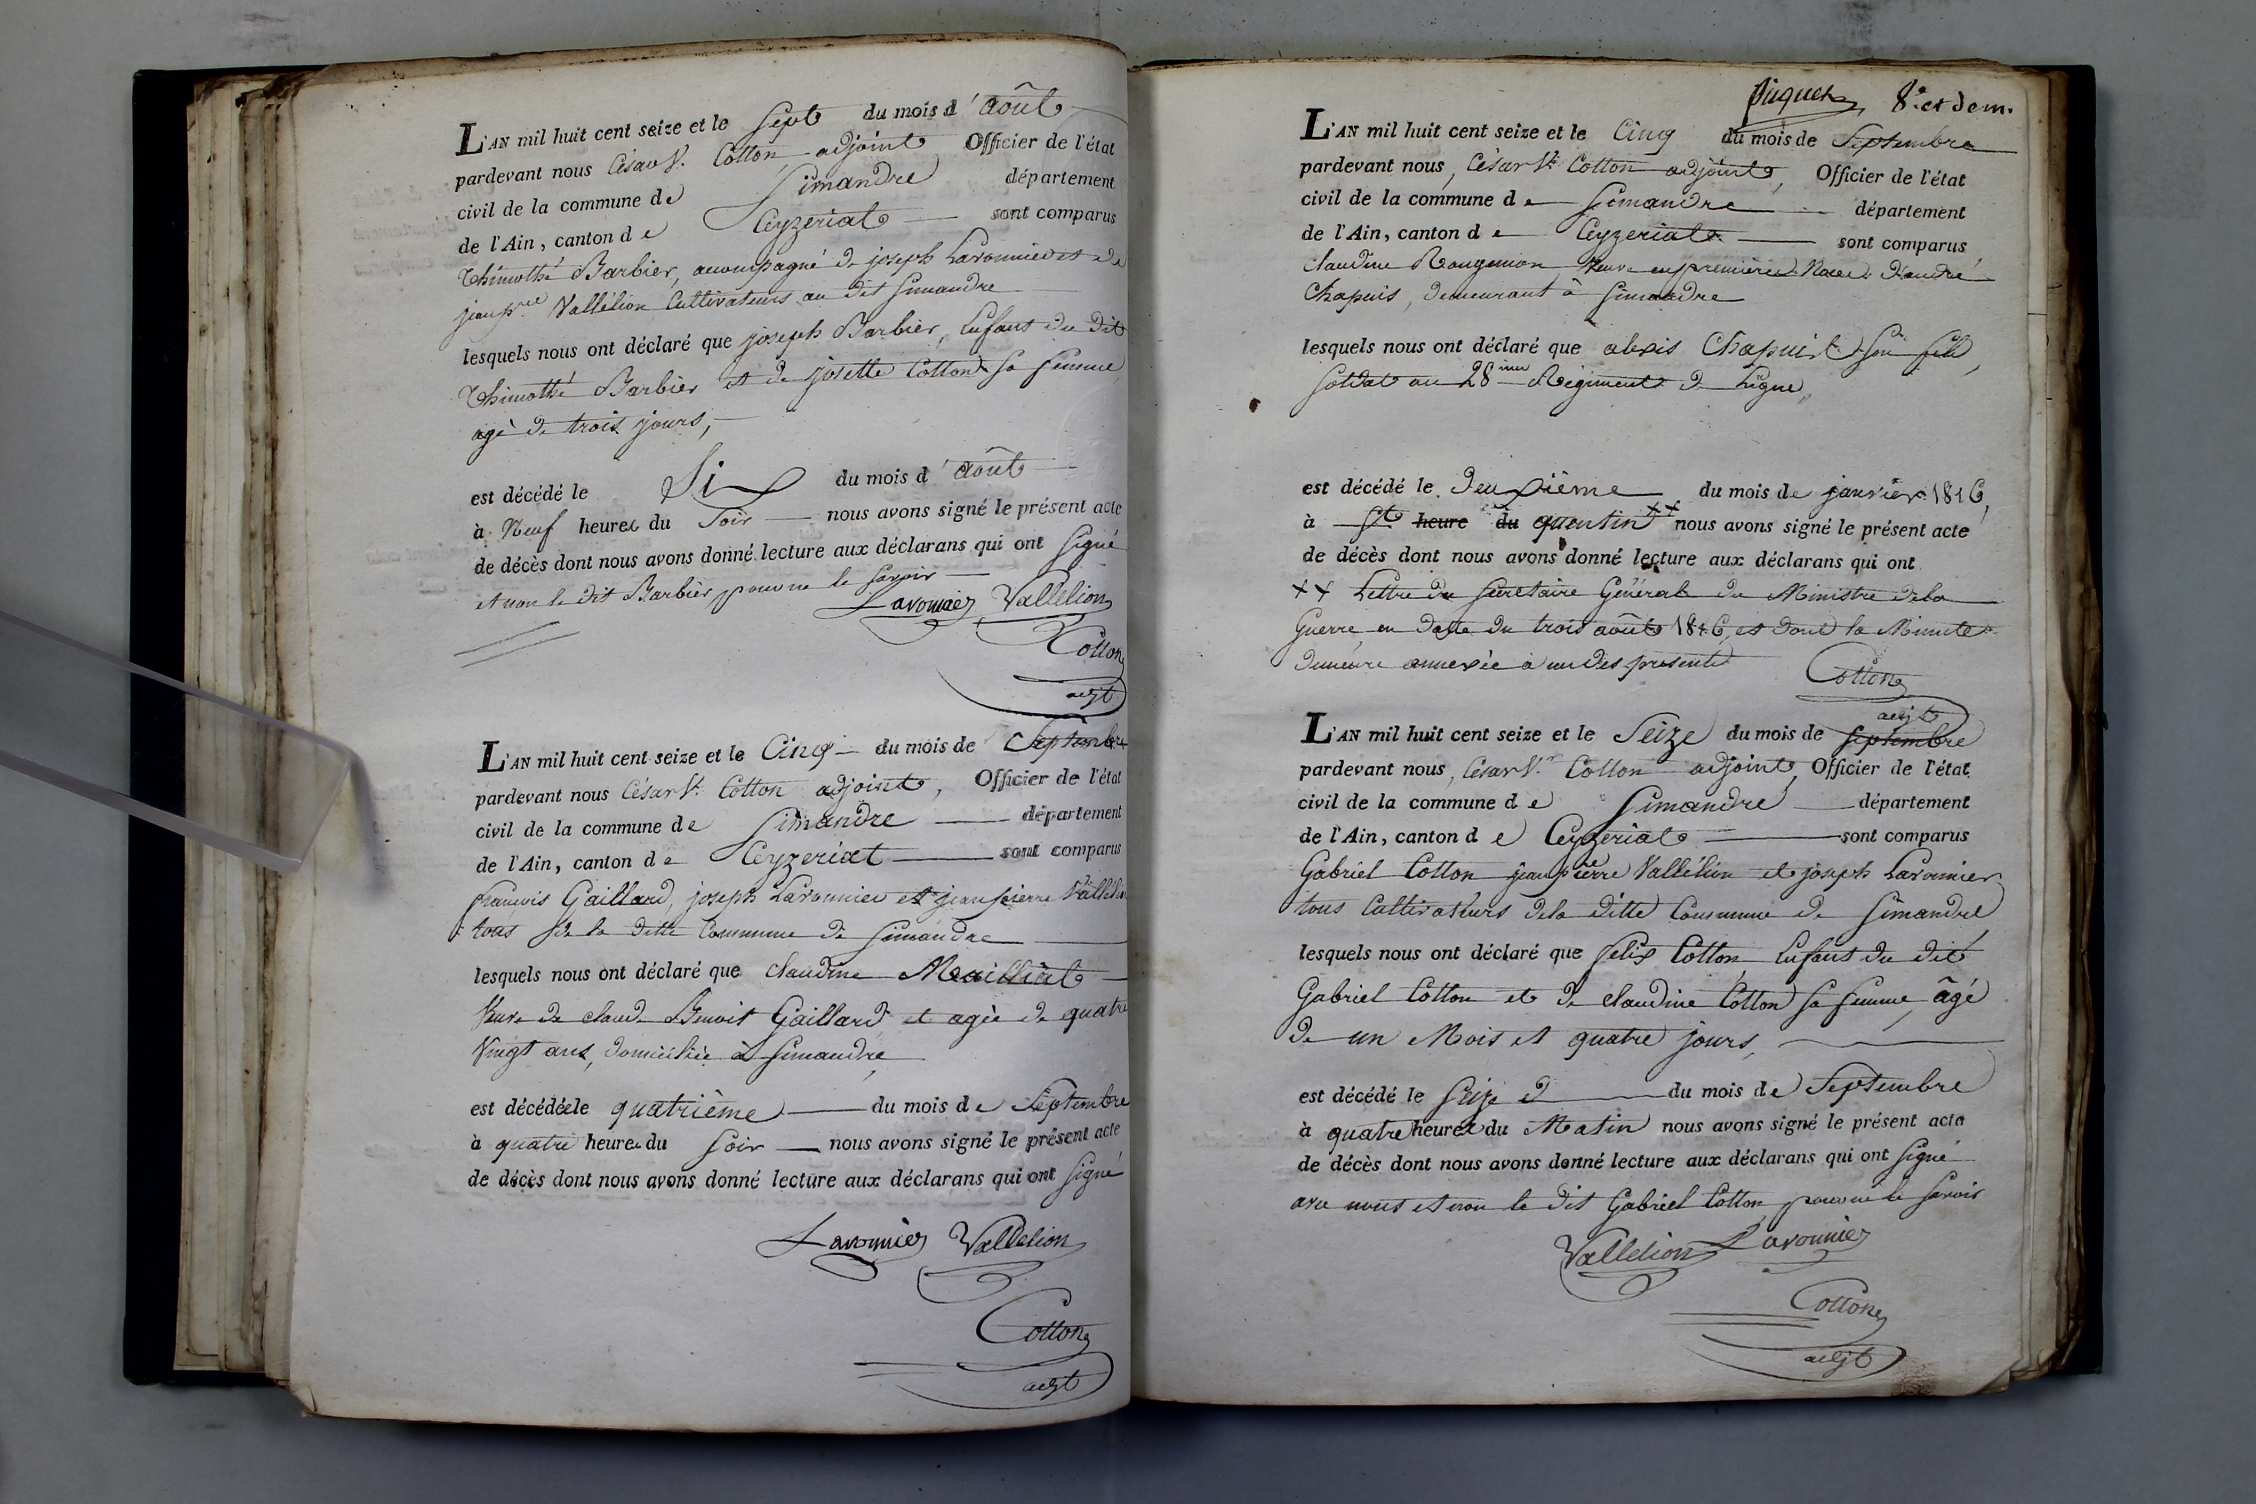 L'AN mil huit cent seize et le Sept du mois d'août
pardevant nous César Vt. Cotton adjoint Officier de l'état
civil de la commune de Simandre département
de l'Ain, canton de Ceyzeriat sont comparus
Thimothé Barbier, accompagné de joseph Lavonnier et de
jean prre Vallélion Cultivateurs au dit Simandre
lesquels nous ont déclaré que joseph Barbier, Enfant du dit
Thimothé Barbier et de josette Cotton sa femme,
agé de trois jours,
est décédé le Six du mois d'août
à Neuf heures du Soir nous avons signé le présent acte
de décès dont nous avons donné lecture aux déclarans qui ont signé
et non le dit Barbier pour ne le savoir
Lavonnier Vallelion
Cotton
adjt
L'AN mil huit cent seize et le Cinq du mois de Septembre
pardevant nous César Vt. Cotton adjoint, Officier de l'état
civil de la commune de Simandre département
de l'Ain, canton de Ceyzeriat sont comparus
françois Gaillard, joseph Lavonnier et jean pierre Vallélion
tous de la ditte Commune de Simandre
lesquels nous ont déclaré que claudine Mailliat
Veuve de claude Benoit Gaillard et agée de quatre
Vingt ans, domiciliée à Simandre,
est décédée le quatrième du mois de Septembre
à quatre heures du Soir nous avons signé le présent acte
de décès dont nous avons donné lecture aux déclarans qui ont signé
Lavonnier Vallelion
Cotton
adjt
8e. et dern.
L'AN mil huit cent seize et le Cinq du mois de Septembre
pardevant nous, César Vt. Cotton adjoint, Officier de l'état
civil de la commune de Simandre département
de l'Ain, canton de Ceyzeriat sont comparus
claudine Rougemon, Veuve en premières Noces d'andré
Chapuis, demeurant à Simandre
lesquels nous ont déclaré que alexis Chapuis son fils,
Soldat au 28ème Régiment de Ligne,
est décédé le deuxième du mois de janvier 1816,
à St. heure du quentin ++ nous avons signé le présent acte
de décès dont nous avons donné lecture aux déclarans qui ont
++ Lettre du Secrétaire Général du Ministre de la
Guerre, en datte du trois août 1816, et dont la Minute
demeure annexée à une des présente
Cotton
adjt
L'AN mil huit cent seize et le Seize du mois de Septembre
pardevant nous, César Vt. Cotton adjoint, Officier de l'état
civil de la commune de Simandre département
de l'Ain, canton de Ceyzeriat sont comparus
Gabriel Cotton jean pierre Vallélion et joseph Lavonnier
tous Cultivateurs de la ditte Commune de Simandre
lesquels nous ont déclaré que felix Cotton Enfant du dit
Gabriel Cotton et de claudine Cotton sa femme, âgé
de un Mois et quatre jours,
est décédé le Seize d du mois de Septembre
à quatre heures du Matin nous avons signé le présent acte
de décès dont nous avons donné lecture aux déclarans qui ont signé
avec nous et non le dit Gabriel Cotton, pour ne le savoir
Vallelion Lavonnier
Cotton
adjt